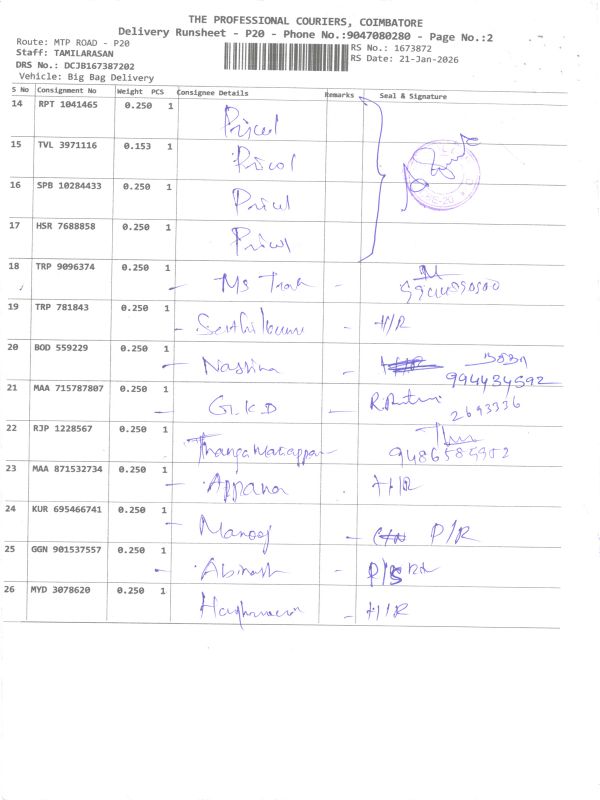 THE PROFESSIONAL COURIERS, COIMBATORE
Delivery Runsheet - P20 - Phone No.:9047080280 - Page No.:2
Route: MTP ROAD - P20
Staff: TAMILARASAN
DRS No.: DCJB167387202
Vehicle: Big Bag Delivery
RS No.: 1673872
RS Date: 21-Jan-2026
S No Consignment No Weight PCS Consignee Details Remarks Seal & Signature
14 RPT 1041465 0.250 1 Pricol
15 TVL 3971116 0.153 1 Pricol
16 SPB 10284433 0.250 1 Pricol
17 HSR 7688858 0.250 1 Pricol
18 TRP 9096374 0.250 1 - Ms -
19 TRP 781843 0.250 1 - Senthilkumar - H/R
20 BOD 559229 0.250 1 - Nasrina - 994434592
21 MAA 715787807 0.250 1 - G.K.D - 2693336
22 RJP 1228567 0.250 1 9486585952
23 MAA 871532734 0.250 1 - Appana H/R
24 KUR 695466741 0.250 1 - Manooj - P/R
25 GGN 901537557 0.250 1 - Abinash -
26 MYD 3078620 0.250 1 - H/R